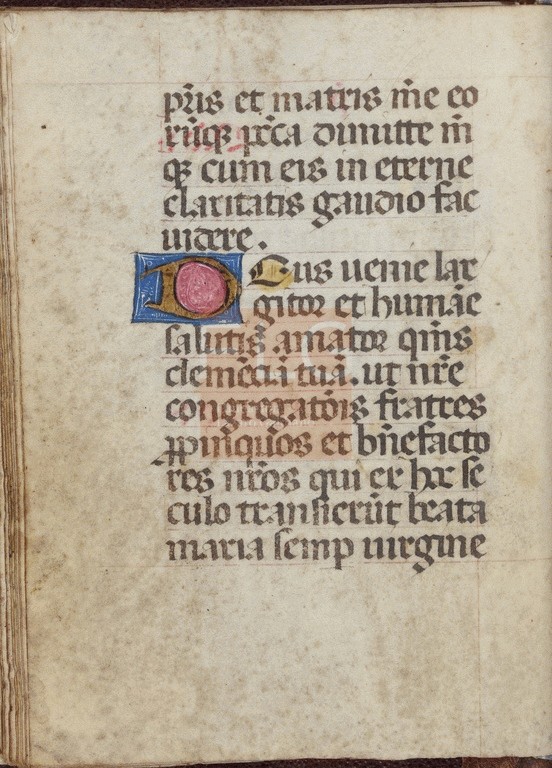 pr̄is et matris m̄e eo
rūqꝫ pc̄ca dimitte m̄
qꝫ cum eis in eterne
claritatis gaudio fac
uidere.
Deus uenie lar
gitor et humāe
salutis amator qm̄s
clemēciā tuā. ut nr̄e
congregatōis fratres
ꝓpinquos et bn̄efacto
res nr̄os qui ex hoc se
culo transierūt beata
maria semp uirgine